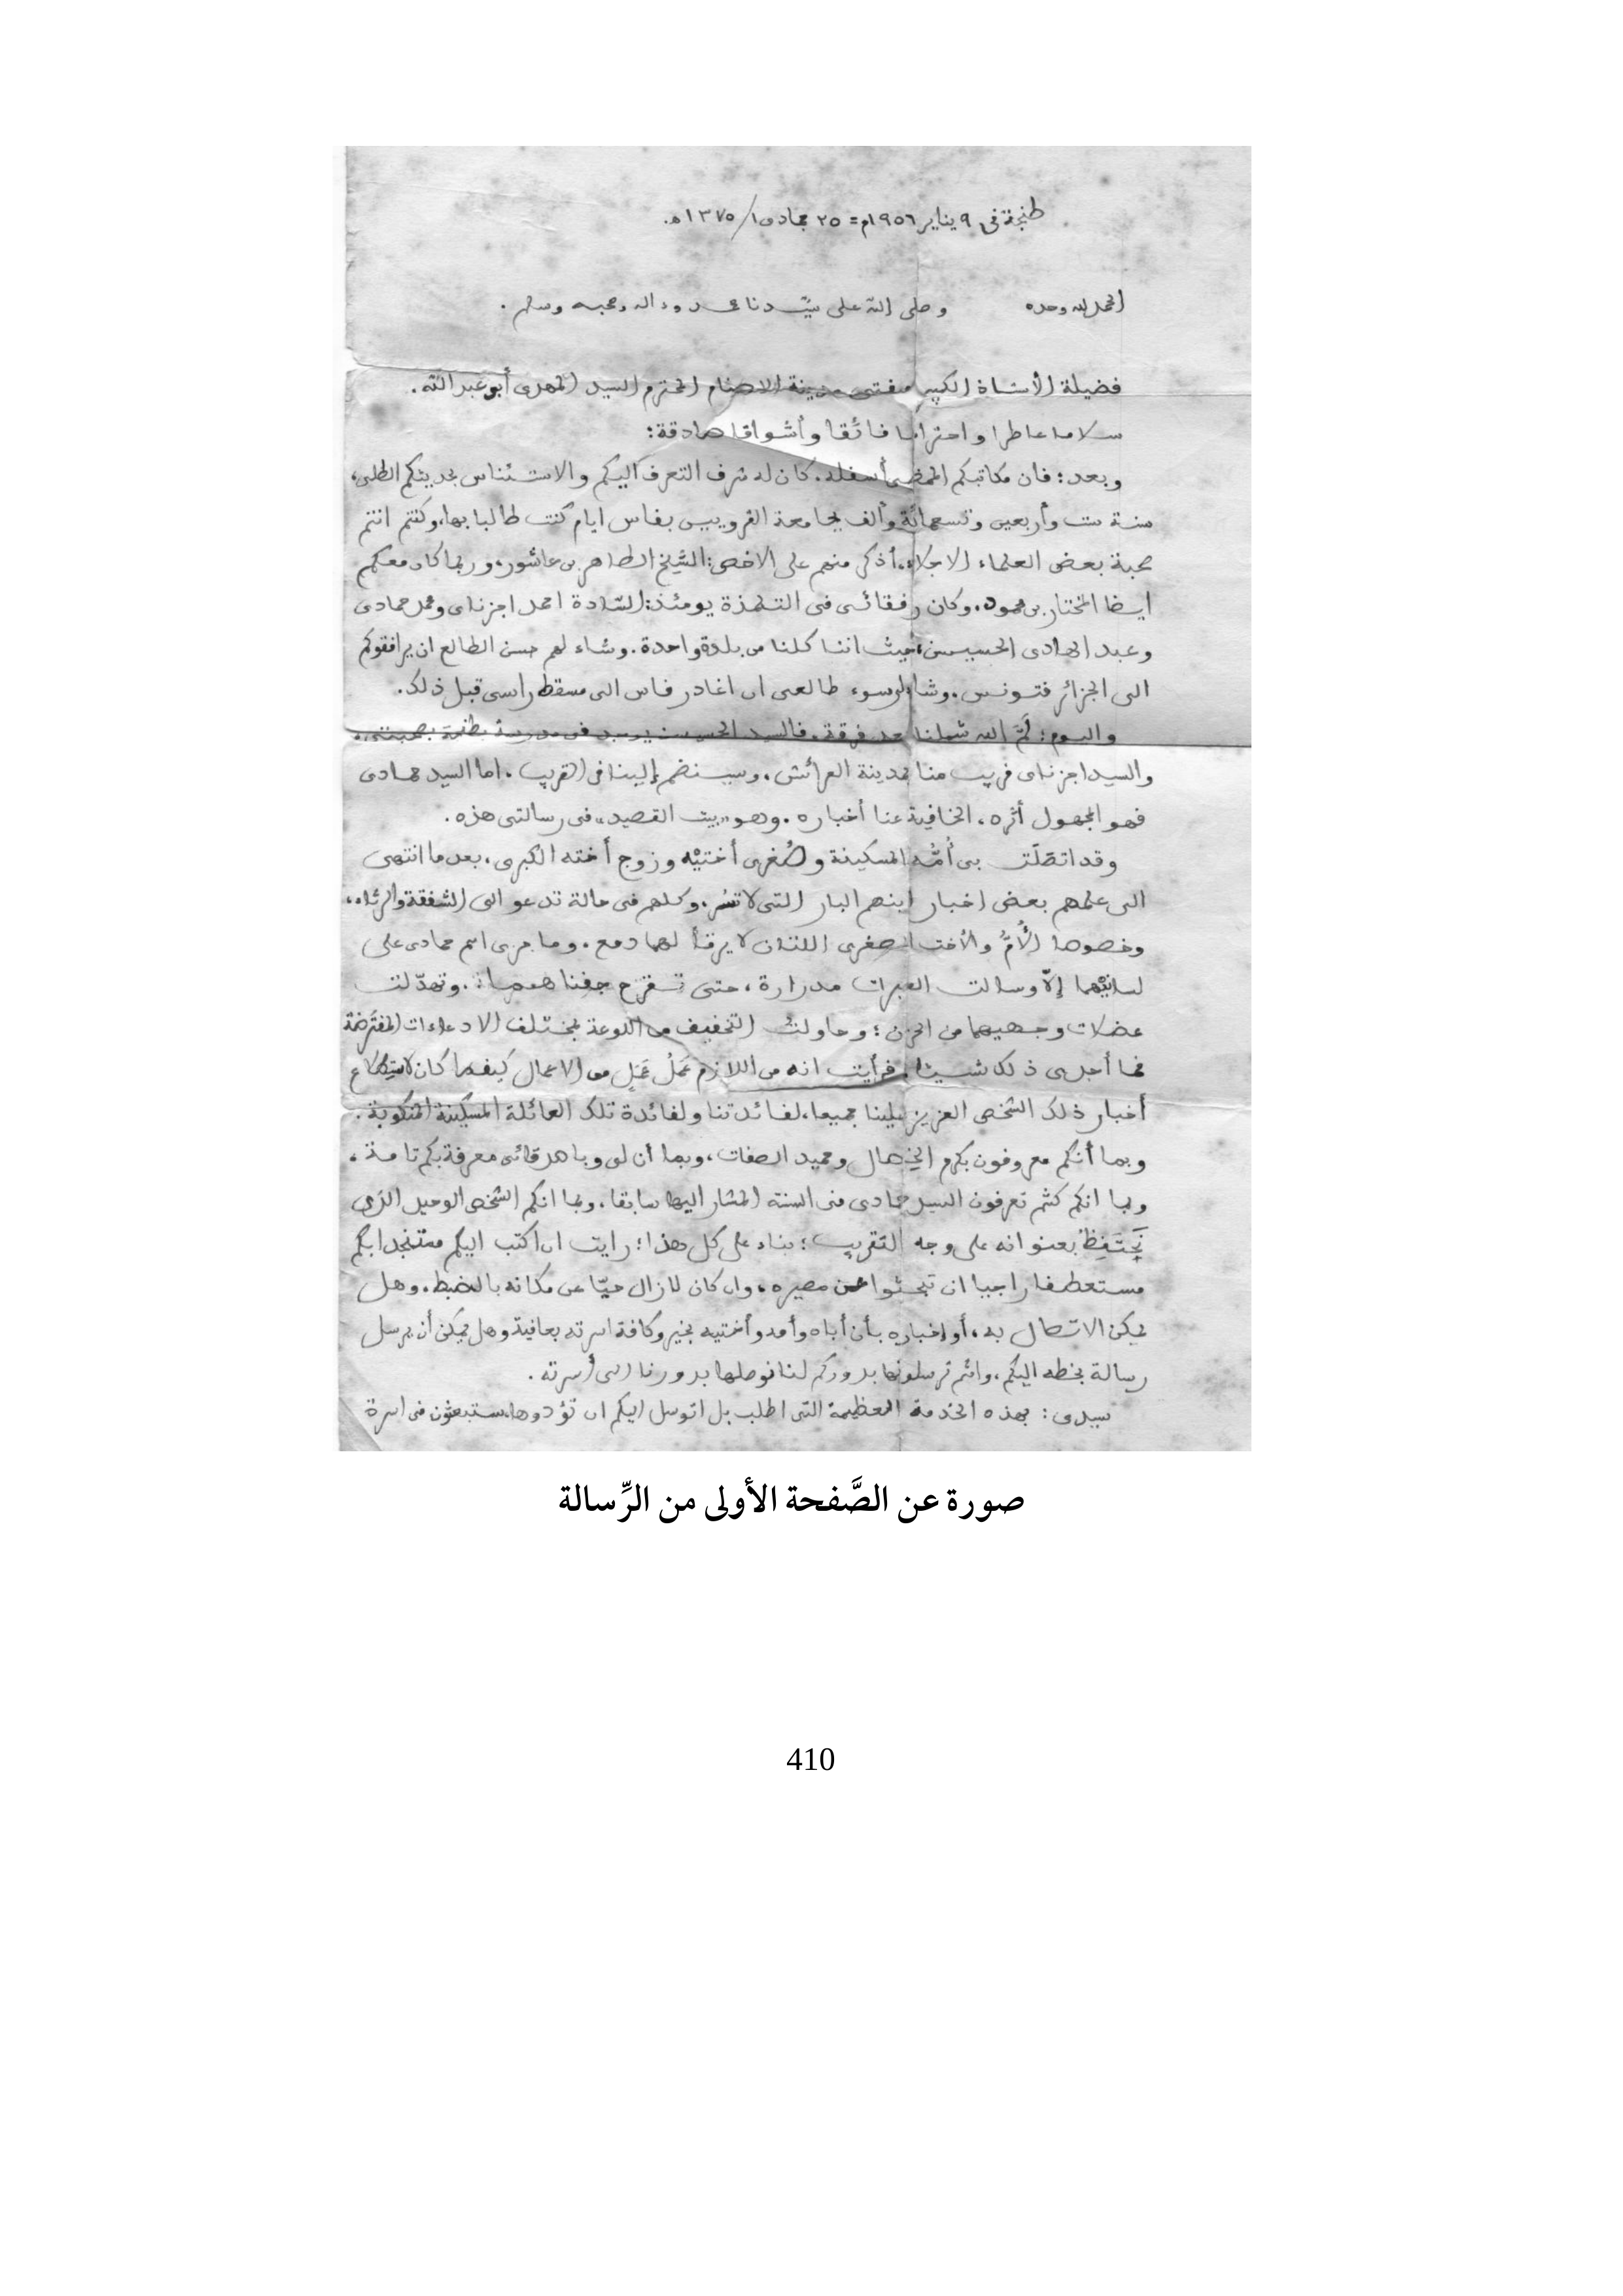 طنجة في ٩ يناير ١٩٥٦م = ٢٥ جمادى١/ ١٣٧٥ه.
الحمد لله وحده وصلى الله على سيّدنا محمد وءاله وصحبه وسلم.
فضيلة الأستاذ الكبير مفتى مدينة الاصنام المحترم السيد المهدى أبو عبد الله.
سلاما عاطرا واحتراما فائقا وأشواقا صادقة:
وبعد؛ فان مكاتبكم الممضى أسفله. كان له شرف التعرف اليكم والاستئناس بحديثكم الطلى،
سنة ست وأربعين وتسعمائة وألف بجامعة القرويين بفاس ايام كنت طالبا بها، وكنتم انتم
صحبة بعض العلماء الاجلاء، أذكر منهم على الاخص: الشيخ الطاهر بن عاشور، وربما كان معكم
ايضا المختار بن محمود. وكان رفقائى فى التلمذة يومئذ: السّادة احمد اجزناى ومحمد حمادى
وعبد الهادى الحسيسن، حيث اننا كلنا من بلدة واحدة. وشاء لهم حسن الطالع ان يرافقوكم
الى الجزائر فتونس. وشاء لى سوء طالعى ان اغادر فاس الى مسقط راسى قبل ذلك.
واليوم: لَمَّ الله شملنا بعد فرقة. فالسيد الحسيسن فى مدرسة بطنجة بصحبتى،
والسيد اجزناى قريب منا بمدينة العرائش. وسينضم إلينا فى القريب. اما السيد حمادى
فهو المجهول أثره، الخافية عنا أخباره. وهو «بيت القصيد» فى رسالتى هذه.
وقد اتصَلَت بى أُمُّه المسكينة وصُغرى أختيْه وزوج أخته الكبرى، بعد ما انتهى
الى علمهم بعض اخبار ابنهم البار التى لا تسُر. وكلهم فى حالة تدعو الى الشفقة والرثاء،
وخصوصا الأُمُّ والأخت الصغرى اللتان لا يرقأ لهما دمع. وما جرى اسم حمادى على
لسانيْهما إلاّ وسالت العبرات مدرارة، حتى تقرح جفناهما. وتهدّلت
عضلات وجهيهما من الحزن؛ وحاولت التخفيف من اللوعة بمختلف الادعاءات المفترضة
فما أجدى ذلك شيئا. فرأيت انه من اللازم عَمَلُ عَمَلٍ من الاعمال كيفما كان لاستطلاع
أخبار ذلك الشخص العزيز علينا جميعا، لفائدتنا ولفائدة تلك العائلة المسكينة المنكوبة.
وبما أنكم معروفون بكرم الخِصال وحميد الصفات، وبما أن لى وباصدقائى معرفة بكم تامة.
وبما انكم كنتم تعرفون السيد حمادى فى السنة المشار اليها سابقا، وبما انكم الشخص الوحيد الذى
نَحتَفِظُ بعنوانه على وجه التقريب؛ بناء على كل هذا؛ رايت ان اكتب اليكم مستنجدا بكم
مستعطفا راجيا ان تبحثوا عن مصيره، وان كان لازال حيّا عن مكانه بالضبط، وهل
يمكن الاتصال به، أو إخباره بأن أباه وأمه وأختيه بخير وكافة اسرته بعافية وهل يمكن أن يرسل
رسالة بخطه اليكم، وانتم ترسلونها بدوركم لنا نوصلها بدورنا إلى أسرته.
سيدى: بهذه الخدمة العظيمة التى اطلب بل اتوسل اليكم ان تؤدوها، ستبعثون فى اسرة
صورة عن الصَّفحة الأولى من الرِّسالة
410